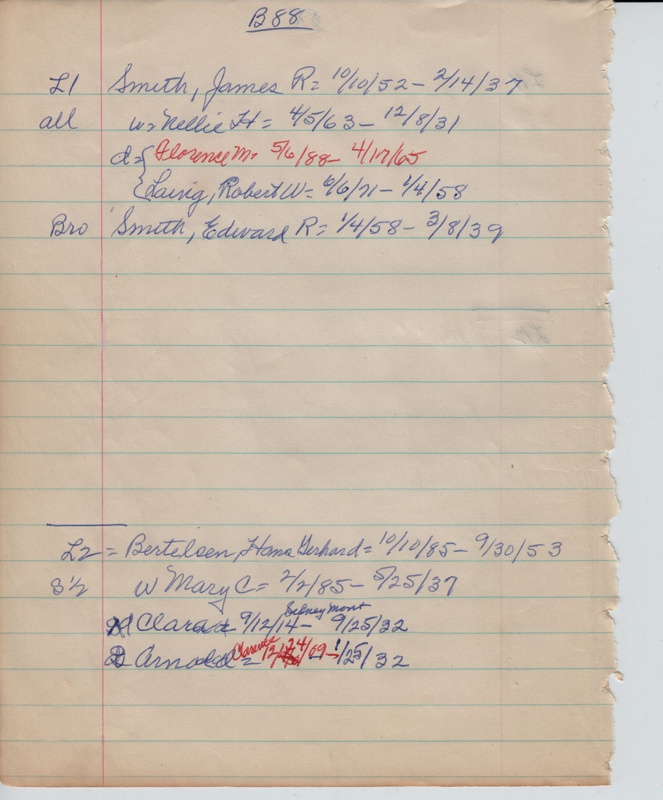 B88
L1 Smith, James R= 10/10/52 - 2/14/37
all w= Nellie H= 4/5/63 - 12/8/31
d= { Florence M= 5/6/88 - 4/17/65
{ Laing, Robert W= 6/6/71 - 1/4/58
Bro Smith, Edward R= 1/4/58 - 3/8/39
L2 = Bertelsen, Hans Gerhard = 10/10/85 - 9/30/53
S½ w Mary C= 2/2/85 - 5/25/37
Sidney Mont
Clara = 9/12/14 - 9/25/32
Clarence
Arnold = 12/24/09 - 1/25/32